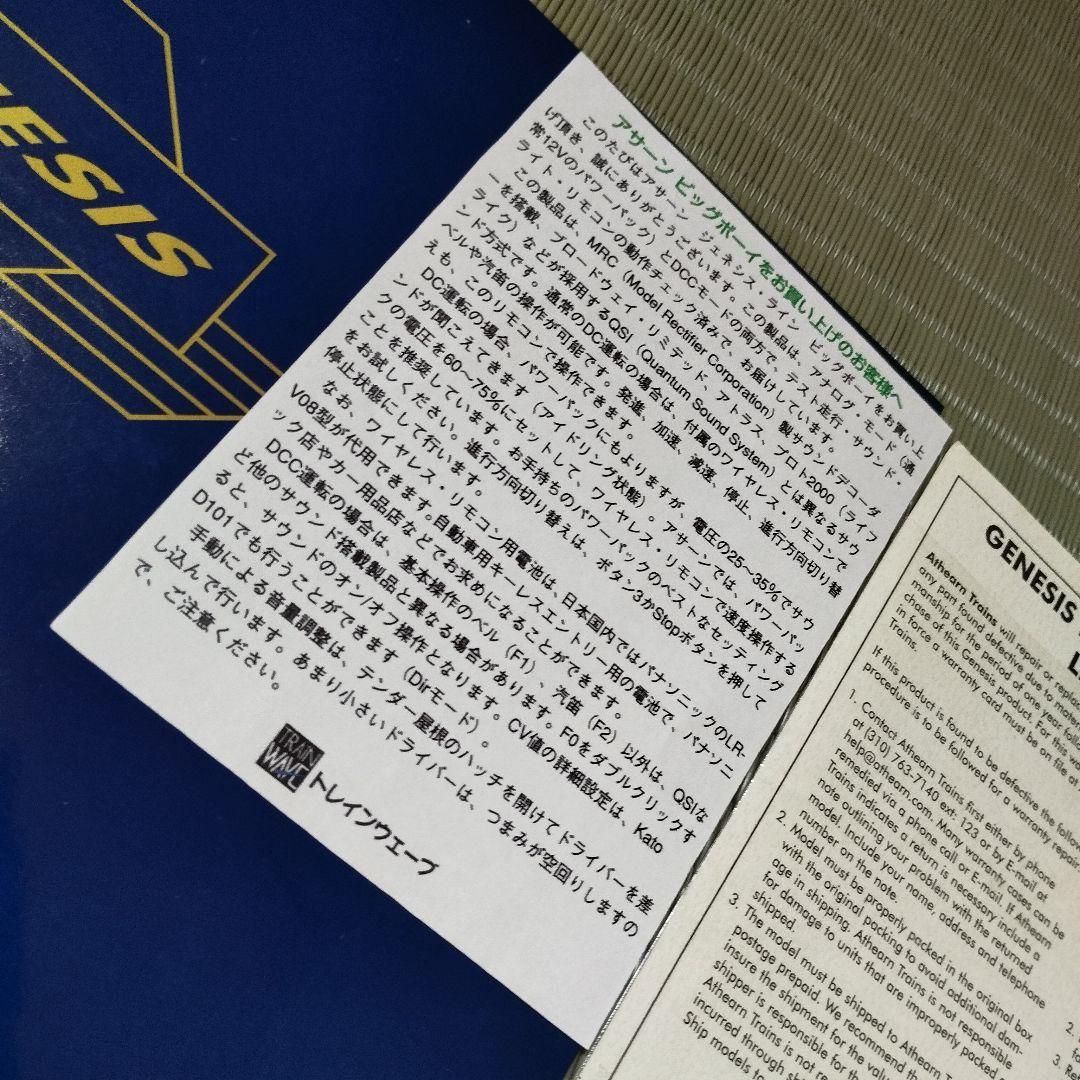 ESIS
アサーン ビッグボーイをお買い上げのお客様へ
このたびはアサーン ジェネシス・ライン ビッグボーイをお買い上
げ頂き、誠にありがとうございます。この製品は、アナログ・モード（通
常12Vのパワーパック）とDCCモードの両方で、テスト走行・サウンド・
ライト・リモコンの動作チェック済みで、お届けしています。
この製品は、MRC（Model Rectifier Corporation）製サウンドデコーダ
ーを搭載、ブロードウェイ・リミテッド、アトラス、プロト2000（ライフ
ライク）などが採用するQSI（Quantum Sound System）とは異なるサウ
ンド方式です。通常のDC運転の場合は、付属のワイヤレス・リモコンで
ベルや汽笛の操作が可能です。発進、加速、減速、停止、進行方向切り替
えも、このリモコンで操作できます。
DC運転の場合、パワーパックにもよりますが、電圧の25～35%でサウ
ンドが聞こえてきます（アイドリング状態）。アサーンでは、パワーパッ
クの電圧を60～75%にセットして、ワイヤレス・リモコンで速度操作する
ことを推奨しています。お手持ちのパワーパックのベストなセッティング
をお試しください。進行方向切り替えは、ボタン3かStopボタンを押して
停止状態にして行います。
なお、ワイヤレス・リモコン用電池は、日本国内ではパナソニックのLR-
V08型が代用できます。自動車用キーレスエントリー用の電池で、パナソニ
ック店やカー用品店などでお求めになることができます。
DCC運転の場合は、基本操作のベル（F1）、汽笛（F2）以外は、QSIな
ど他のサウンド搭載製品と異なる場合があります。F0をダブルクリックす
ると、サウンドのオン/オフ操作となります。CV値の詳細設定は、Kato
D101でも行うことができます（Dirモード）。
手動による音量調整は、テンダー屋根のハッチを開けてドライバーを差
し込んで行います。あまり小さいドライバーは、つまみが空回りしますの
で、ご注意ください。
TRAIN
WAVE
トレインウェーブ
GENESIS
L
Athearn Trains will repair or replace
any part found defective due to mater
manship for the period of one year follo
chase of this Genesis product. For this wa
in force a warranty card must be on file at
Trains.
If this product is found to be defective the follow
procedure is to be followed for a warranty repair
1. Contact Athearn Trains first either by phone
at (310) 763-7140 ext: 123 or by E-mail at
help@athearn.com. Many warranty cases can be
remedied via a phone call or E-mail. If Athearn
Trains indicates a return is necessary include a
note outlining your problem with the returned
model. Include your name, address and telephone
number on the note.
2. Model must be properly packed in the original box
with the original packing to avoid additional dam-
age in shipping. Athearn Trains is not responsible
for damage to units that are improperly packed
shipped.
3. The model must be shipped to Athearn Trains
postage prepaid. We recommend that
insure the shipment for the val
shipper is responsible for
Athearn Trains is not re
incurred through sh
Ship models to
2.
3. Re